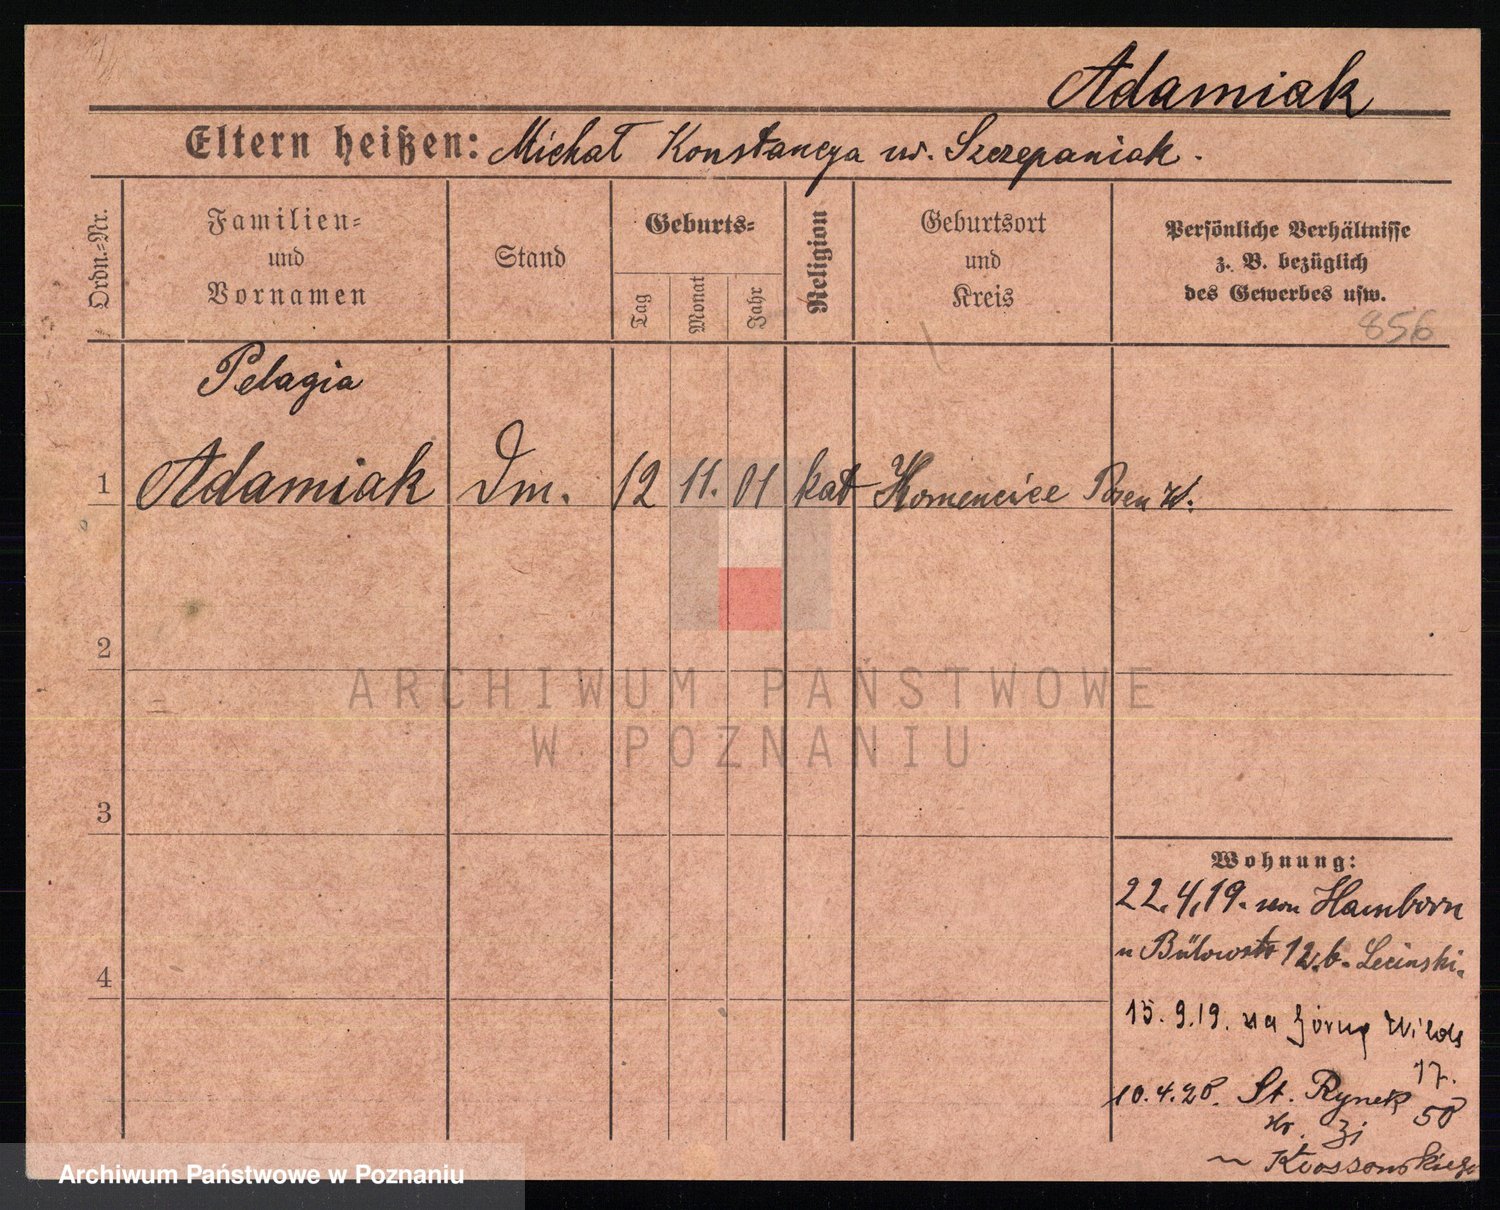 Adamiak
Eltern heißen: Michał Konstancya ur. Szczepaniak.
Ordn.=Nr.
Familien=
und
Vornamen
Stand
Geburts=
Tag
Monat
Jahr
Religion
Geburtsort
und
Kreis
Persönliche Verhältnisse
z. B. bezüglich
des Gewerbes usw.
856
Pelagia
1 Adamiak Dm. 12 11. 01 kat Komencice Posen W.
2
ARCHIWUM PAŃSTWOWE
W POZNANIU
3
Wohnung:
22.4.19. von Hamborn
n Bülowstr 12. b. Lecinski.
4
15. 9.19. na Górną Wilds
17.
10.4.20. St. Rynek 50
Kossowskiego
Archiwum Państwowe w Poznaniu